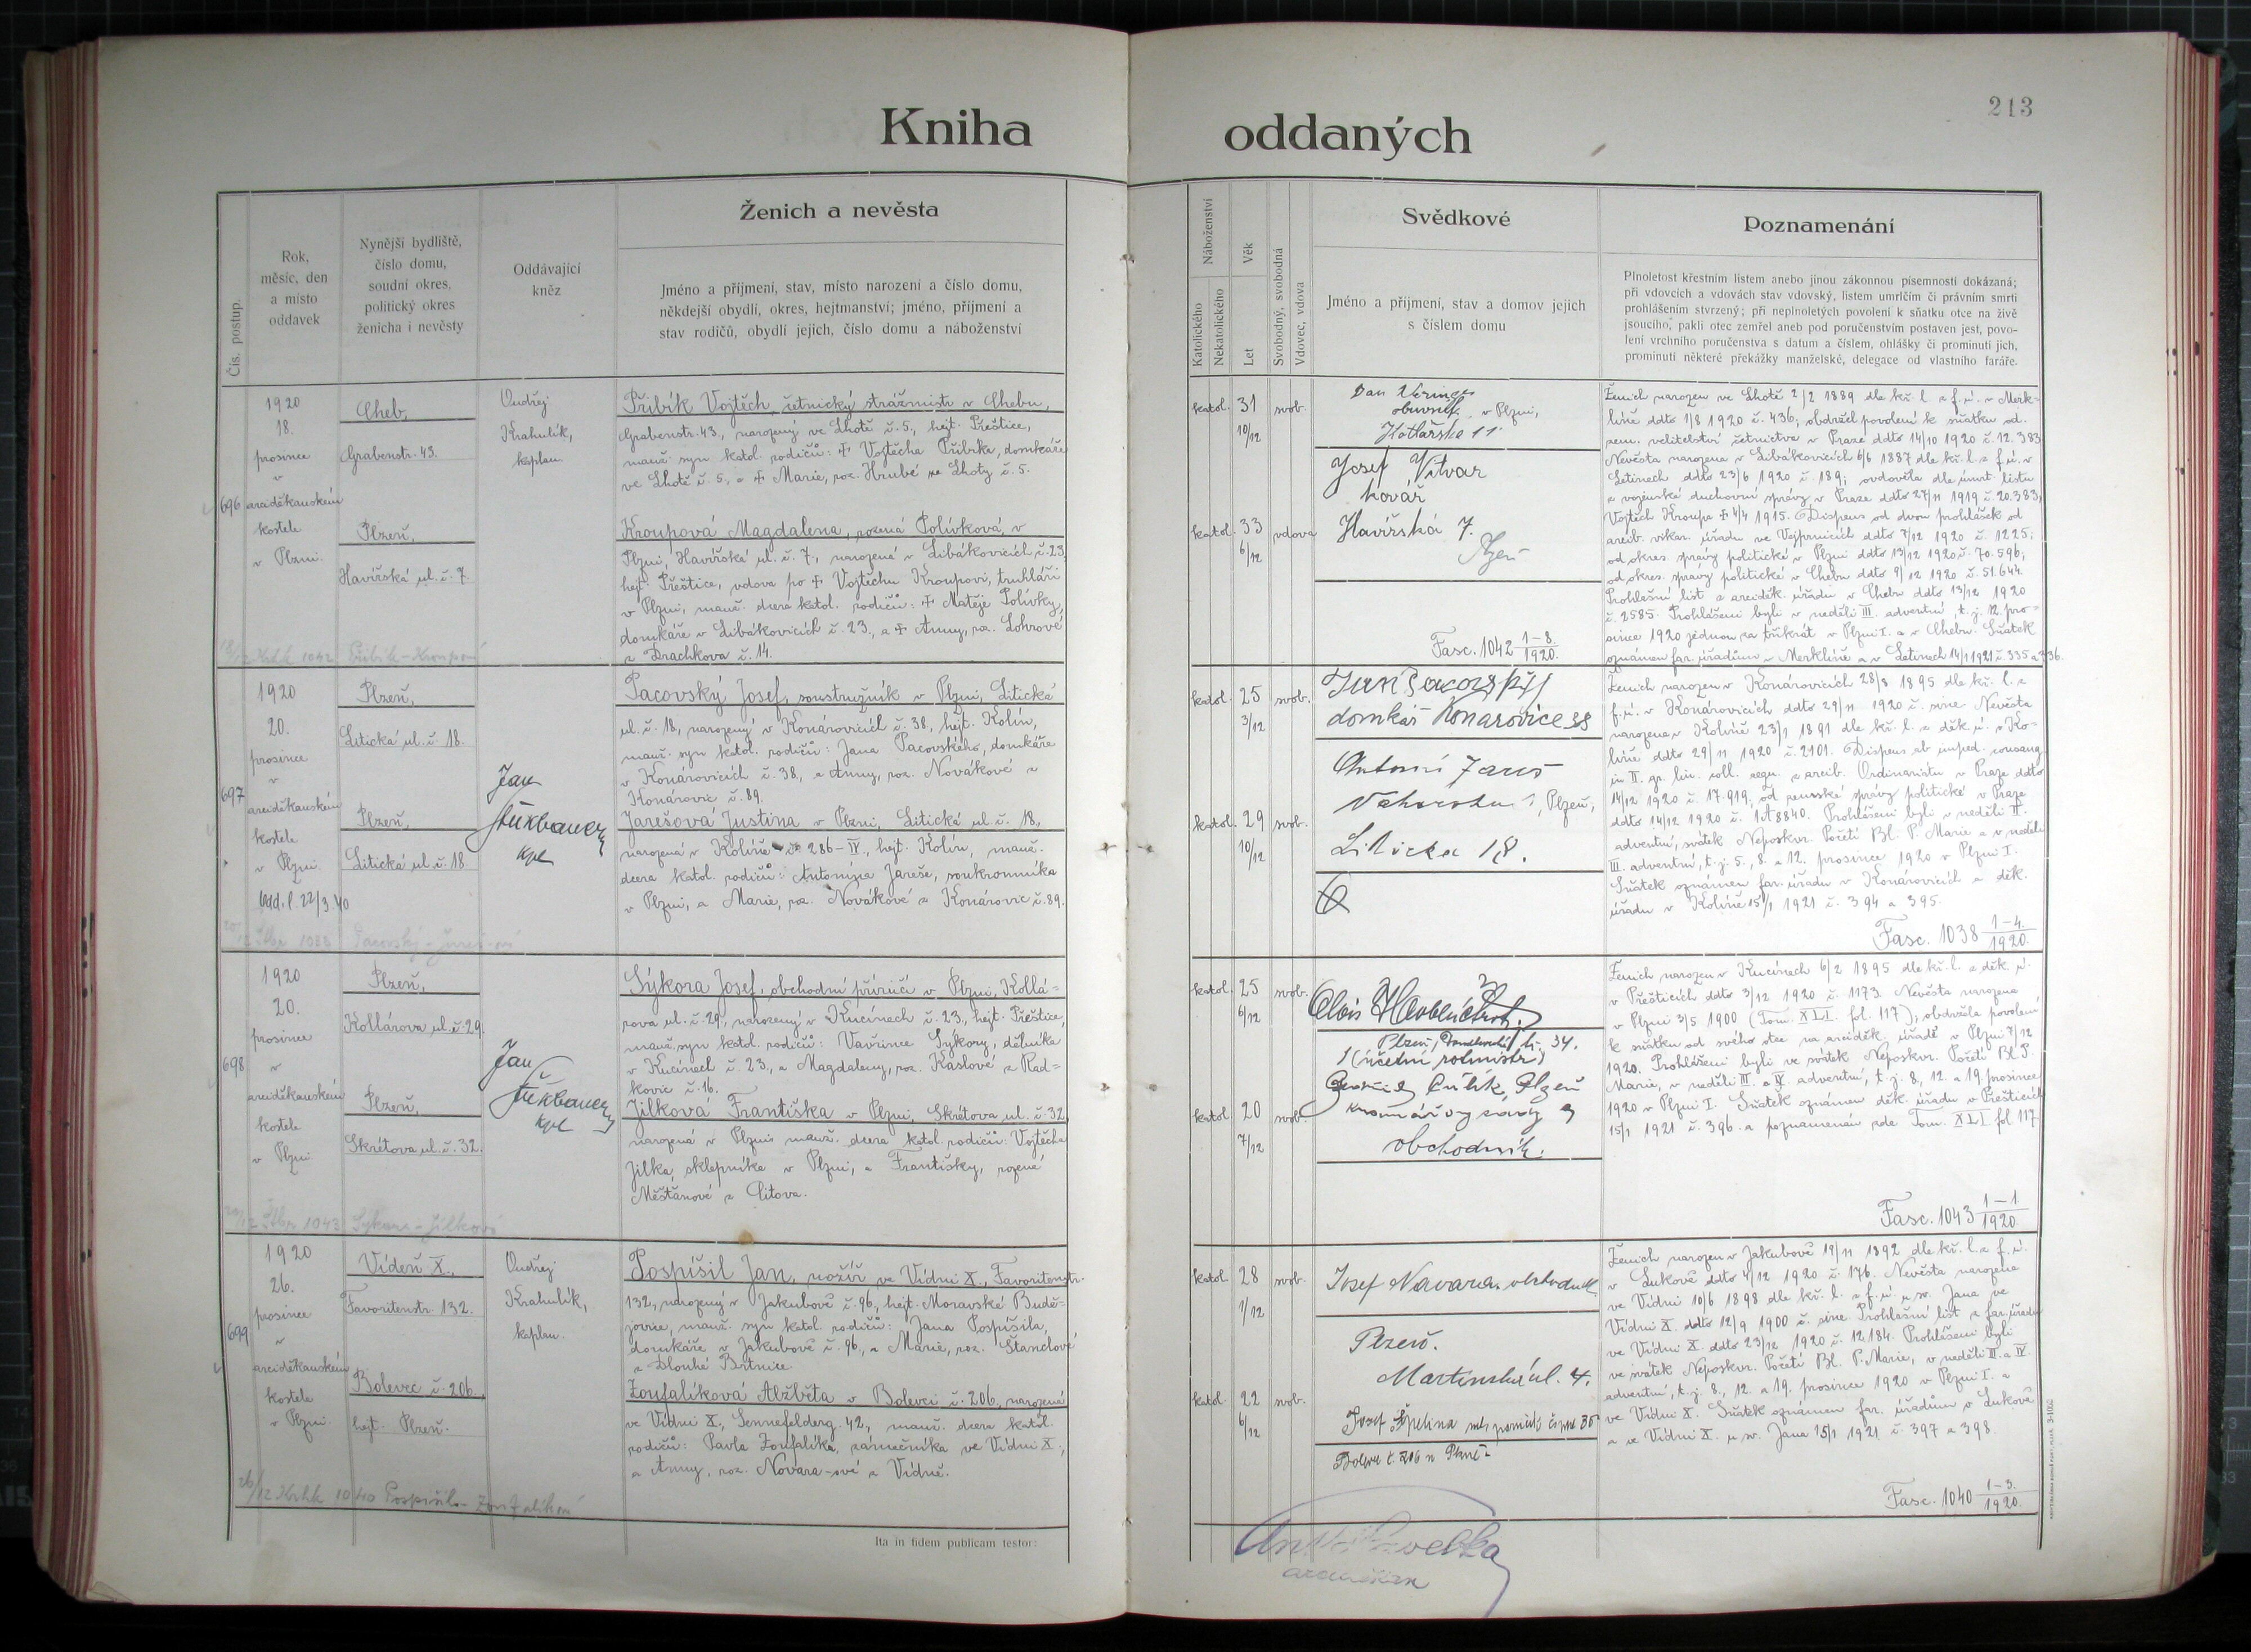 Kniha oddaných
213
Čís. postup.
Rok,
měsíc, den
a místo
oddavek
Nynější bydliště,
číslo domu,
soudní okres,
politický okres
ženicha i nevěsty
Oddávající
kněz
Ženich a nevěsta
Jméno a příjmení, stav, místo narození a číslo domu,
někdejší obydlí, okres, hejtmanství; jméno, příjmení a
stav rodičů, obydlí jejich, číslo domu a náboženství
Náboženství
Katolického
Nekatolického
Věk
Let
Svobodný, svobodná
Vdovec, vdova
Svědkové
Jméno a příjmení, stav a domov jejich
s číslem domu
Poznamenání
Plnoletost křestním listem anebo jinou zákonnou písemností dokázaná;
při vdovcích a vdovách stav vdovský, listem úmrtčím či právním smrti
prohlášením stvrzený; při neplnoletých povolení k sňatku otce na živě
jsoucího, pakli otec zemřel aneb pod poručenstvím postaven jest, povo-
lení vrchního poručenstva s datum a číslem, ohlášky či prominutí jich,
prominutí některé překážky manželské, delegace od vlastního faráře.
696
1920
18.
prosince
v
arciděkanském
kostele
v Plzni.
Cheb,
Grabenstr. 43.
Plzeň,
Havířská ul. č. 7.
Ondřej
Krahulík,
kaplan.
Přibík Vojtěch, četnický strážmistr v Chebu,
Grabenstr. 43., narozený ve Lhotě č. 5., hejt. Přeštice,
manž. syn katol. rodičů: ☩ Vojtěcha Přibíka, domkáře
ve Lhotě č. 5., a ☩ Marie, roz. Hrubé ze Lhoty č. 5.
Kroupová Magdalena, rozená Polívková, v
Plzni, Havířská ul. č. 7., narozená v Libákovicích č. 23,
hejt. Přeštice, vdova po ☩ Vojtěchu Kroupovi, truhláři
v Plzni, manž. dcera katol. rodičů: ☩ Matěje Polívky,
domkáře v Libákovicích č. 23., a ☩ Anny, roz. Lohrové
z Drachkova č. 14.
katol. 31 10/12 svob.
katol. 33 6/12 vdova
obuvník v Plzni,
Kotlářská 11
Josef Vitvar
kovář
Havířská 7.
Plzeň
Fasc. 1042 1-8./1920.
Ženich narozen ve Lhotě 2/2 1889 dle kř. l. z f. ú. v Merk-
líně ddto 1/8 1920 č. 436; obdržel povolení k sňatku od
zem. velitelství četnictva v Praze ddto 14/10 1920 č. 12.383
Nevěsta narozena v Libákovicích 6/6 1887 dle kř. l. z f. ú. v
Letinech ddto 23/6 1920 č. 189; ovdověla dle úmrt. listu
z vojenské duchovní správy v Praze ddto 27/11 1919 č. 20.383,
Vojtěch Kroupa ☩ 4/4 1915. Dispens od dvou prohlášek od
arcib. vikar. úřadu ve Vejprnicích ddto 7/12 1920 č. 1225;
od okres. správy politické v Plzni ddto 13/12 1920 č. 70.596;
od okres. správy politické v Chebu ddto 9/12 1920 č. 51.644.
Prohlašní list z arciděk. úřadu v Chebu ddto 13/12 1920
č. 2585. Prohlášeni byli v neděli III. adventní, t. j. 12. pro-
since 1920 jednou za třikrát v Plzni I. a v Chebu. Sňatek
oznámen far. úřadům v Merklíně a v Letinech 14/1 1921 č. 335 a 336.
697
1920
20.
prosince
v
arciděkanském
kostele
v Plzni.
22/3.40
Plzeň,
Litická ul. č. 18.
Plzeň,
Litická ul. č. 18.
Jan
kpl
Pacovský Josef, soustružník v Plzni, Litická
ul. č. 18, narozený v Konárovicích č. 38, hejt. Kolín,
manž. syn katol. rodičů: Jana Pacovského, domkáře
v Konárovicích č. 38, a Anny, roz. Novákové z
Konárovic č. 89.
Jarešová Justina v Plzni, Litická ul. č. 18,
narozená v Kolíně č. 286-IV., hejt. Kolín, manž.
dcera katol. rodičů: Antonína Jareše, soukromníka
v Plzni, a Marie, roz. Novákové z Konárovic č. 89.
katol. 25 3/12 svob.
katol. 29 10/12 svob.
Jan Pacovský
domkář Konarovice 38
Antonín Jareš
Plzeň,
Liticka 18.
Ženich narozen v Konárovicích 28/8 1895 dle kř. l. z
f. ú. v Konárovicích ddto 29/11 1920 č. sine. Nevěsta
narozena v Kolíně 23/1 1891 dle kř. l. z děk. ú. v Ko-
líně ddto 29/11 1920 č. 2101. Dispens ab imped. consang.
in II. gr. lin. coll. aequ. z arcib. Ordinariátu v Praze ddto
14/12 1920 č. 17.919, od zemské správy politické v Praze
ddto 14/12 1920 č. 1A8840. Prohlášeni byli v neděli II.
adventní, svátek Neposkvr. Početí Bl. P. Marie a v neděli
III. adventní, t. j. 5., 8. a 12. prosince 1920 v Plzni I.
Sňatek oznámen far. úřadu v Konárovicích a děk.
úřadu v Kolíně 15/1 1921 č. 394 a 395.
Fasc. 1038 1-4./1920.
698
1920
20.
prosince
v
arciděkanském
kostele
v Plzni
Plzeň,
Kollárova ul. č. 29.
Plzeň,
Skrétova ul. č. 32.
Jan
kpl
Sýkora Josef, obchodní příručí v Plzni, Kollá-
rova ul. č. 29., narozený v Kucínech č. 23., hejt. Přeštice,
manž. syn katol. rodičů: Vavřince Sýkory, dělníka
v Kucínech č. 23, a Magdaleny, roz. Káslové z Rad-
kovic č. 16.
Jílková Františka v Plzni, Skrétova ul. č. 32,
narozená v Plzni manž. dcera katol. rodičů: Vojtěcha
Jílka, sklepníka v Plzni, a Františky, rozené
Měšťanové z Litova.
katol. 25 6/12 svob.
katol. 20 7/12 svob.
Alois
Plzeň, 34.
(účetní rotmistr)
Plzeň
obchodník.
Ženich narozen v Kucínech 6/2 1895 dle kř. l. z děk. ú.
v Přešticích ddto 3/12 1920 č. 1173. Nevěsta narozena
v Plzni 3/5 1900 (Tom. XLI. fol. 117), obdržela povolení
k sňatku od svého otce na arciděk. úřadě v Plzni 7/12
1920. Prohlášeni byli ve svátek Neposkvr. Početí Bl. P.
Marie, v neděli III. a IV. adventní, t. j. 8., 12. a 19. prosince
1920 v Plzni I. Sňatek oznámen děk. úřadu v Přešticích
15/1 1921 č. 396. a poznamenán zde Tom. XLI fol 117
Fasc. 1043 1-1/1920
699
1920
26.
prosince
v
arciděkanském
kostele
v Plzni.
Vídeň X.,
Favoritenstr. 132.
Bolevec č. 206.,
hejt. Plzeň.
Ondřej
Krahulík,
kaplan.
Pospíšil Jan, nožíř ve Vídni X., Favoritenstr.
132., narozený v Jakubově č. 96., hejt. Moravské Budě-
jovice, manž. syn katol. rodičů: Jana Pospíšila,
domkáře v Jakubově č. 96., a Marie, roz. Štanclové
z Dlouhé Brtnice.
Zoufalíková Alžběta v Bolevci č. 206, narozená
ve Vídni X., Sennefelderg. 42., manž. dcera katol.
rodičů: Pavla Zoufalíka, zámečníka ve Vídni X.,
a Anny, roz. Novara-ové z Vídně.
katol. 28 1/12 svob.
katol. 22 6/12 svob.
Josef Navara obchodník
Plzeň.
Martinská ul. 4.
Josef Špelina
Ženich narozen v Jakubově 19/11 1892 dle kř. l. z f. ú.
v Lukově ddto 4/12 1920 č. 176. Nevěsta narozena
ve Vídni 10/6 1898 dle kř. l. z f. ú. u sv. Jana ve
Vídni X. ddto 12/9 1900 č. sine. Prohlašní list z far. úřadu
ve Vídni X. ddto 23/12 1920 č. 12.184. Prohlášeni byli
ve svátek Neposkvr. Početí Bl. P. Marie, v neděli III. a IV.
adventní, t. j. 8., 12. a 19. prosince 1920 v Plzni I. a
ve Vídni X. Sňatek oznámen far. úřadům v Lukově
a ve Vídni X. u sv. Jana 15/1 1921 č. 397 a 398.
Fasc. 1040 1-3./1920.
Ita in fidem publicam testor: